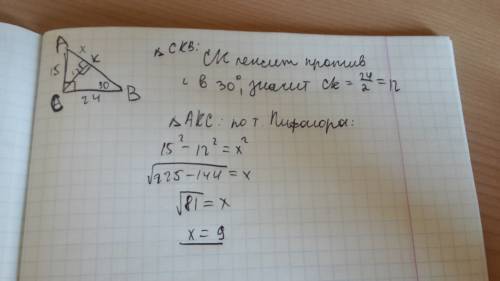 A
x
K
15
C
24
30
B
△ CKB:
CK лежит против
∠ B 30°, значит CK = 24/2 = 12
△ AKC: по т. Пифагора:
15² - 12² = x²
√225-144 = x
√81 = x
x = 9